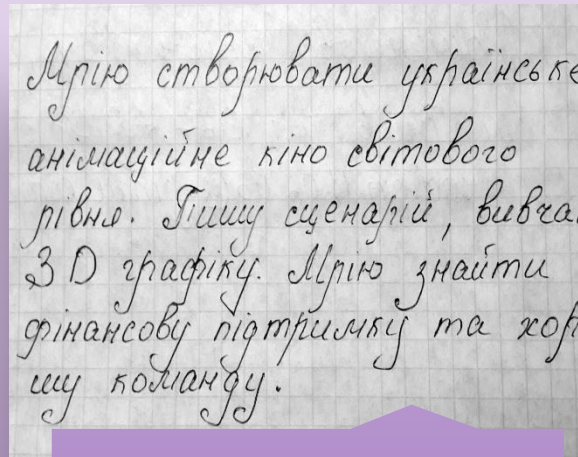 Мрію створювати українське
анімаційне кіно світового
рівня. Пишу сценарій, вивча
3D графіку. Мрію знайти
фінансову підтримку та хор
шу команду.